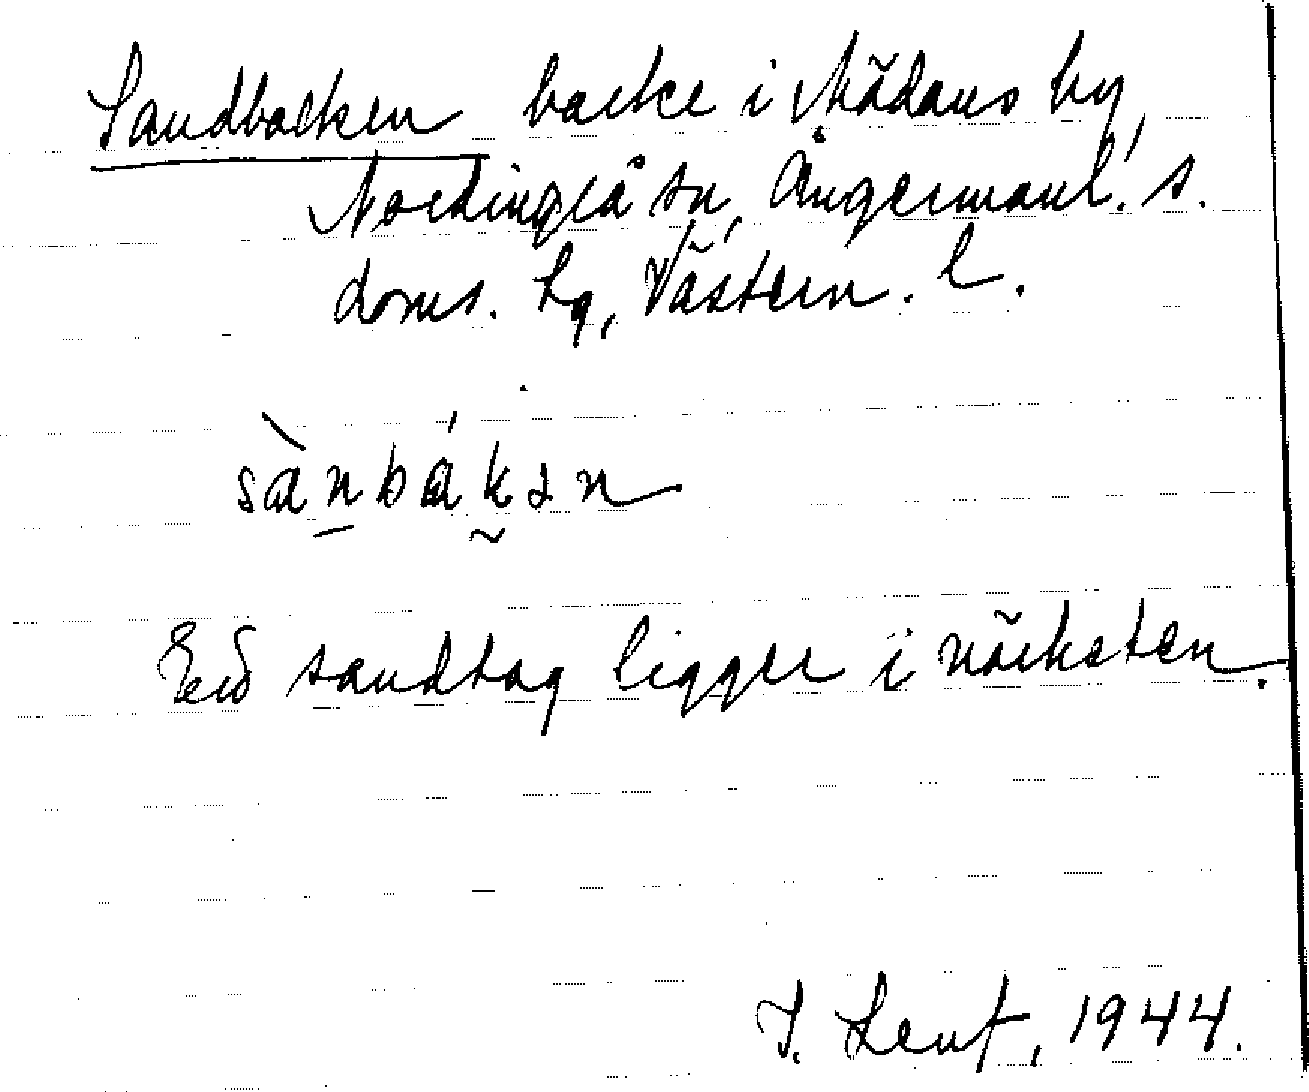 Sandbacken backe i Mädans by,
Nordingrå sn, Ångermanl. s.
doms. hg, Västern. l.
sànbákən
Ett sandtag ligger i närheten.
J. Lent, 1944.